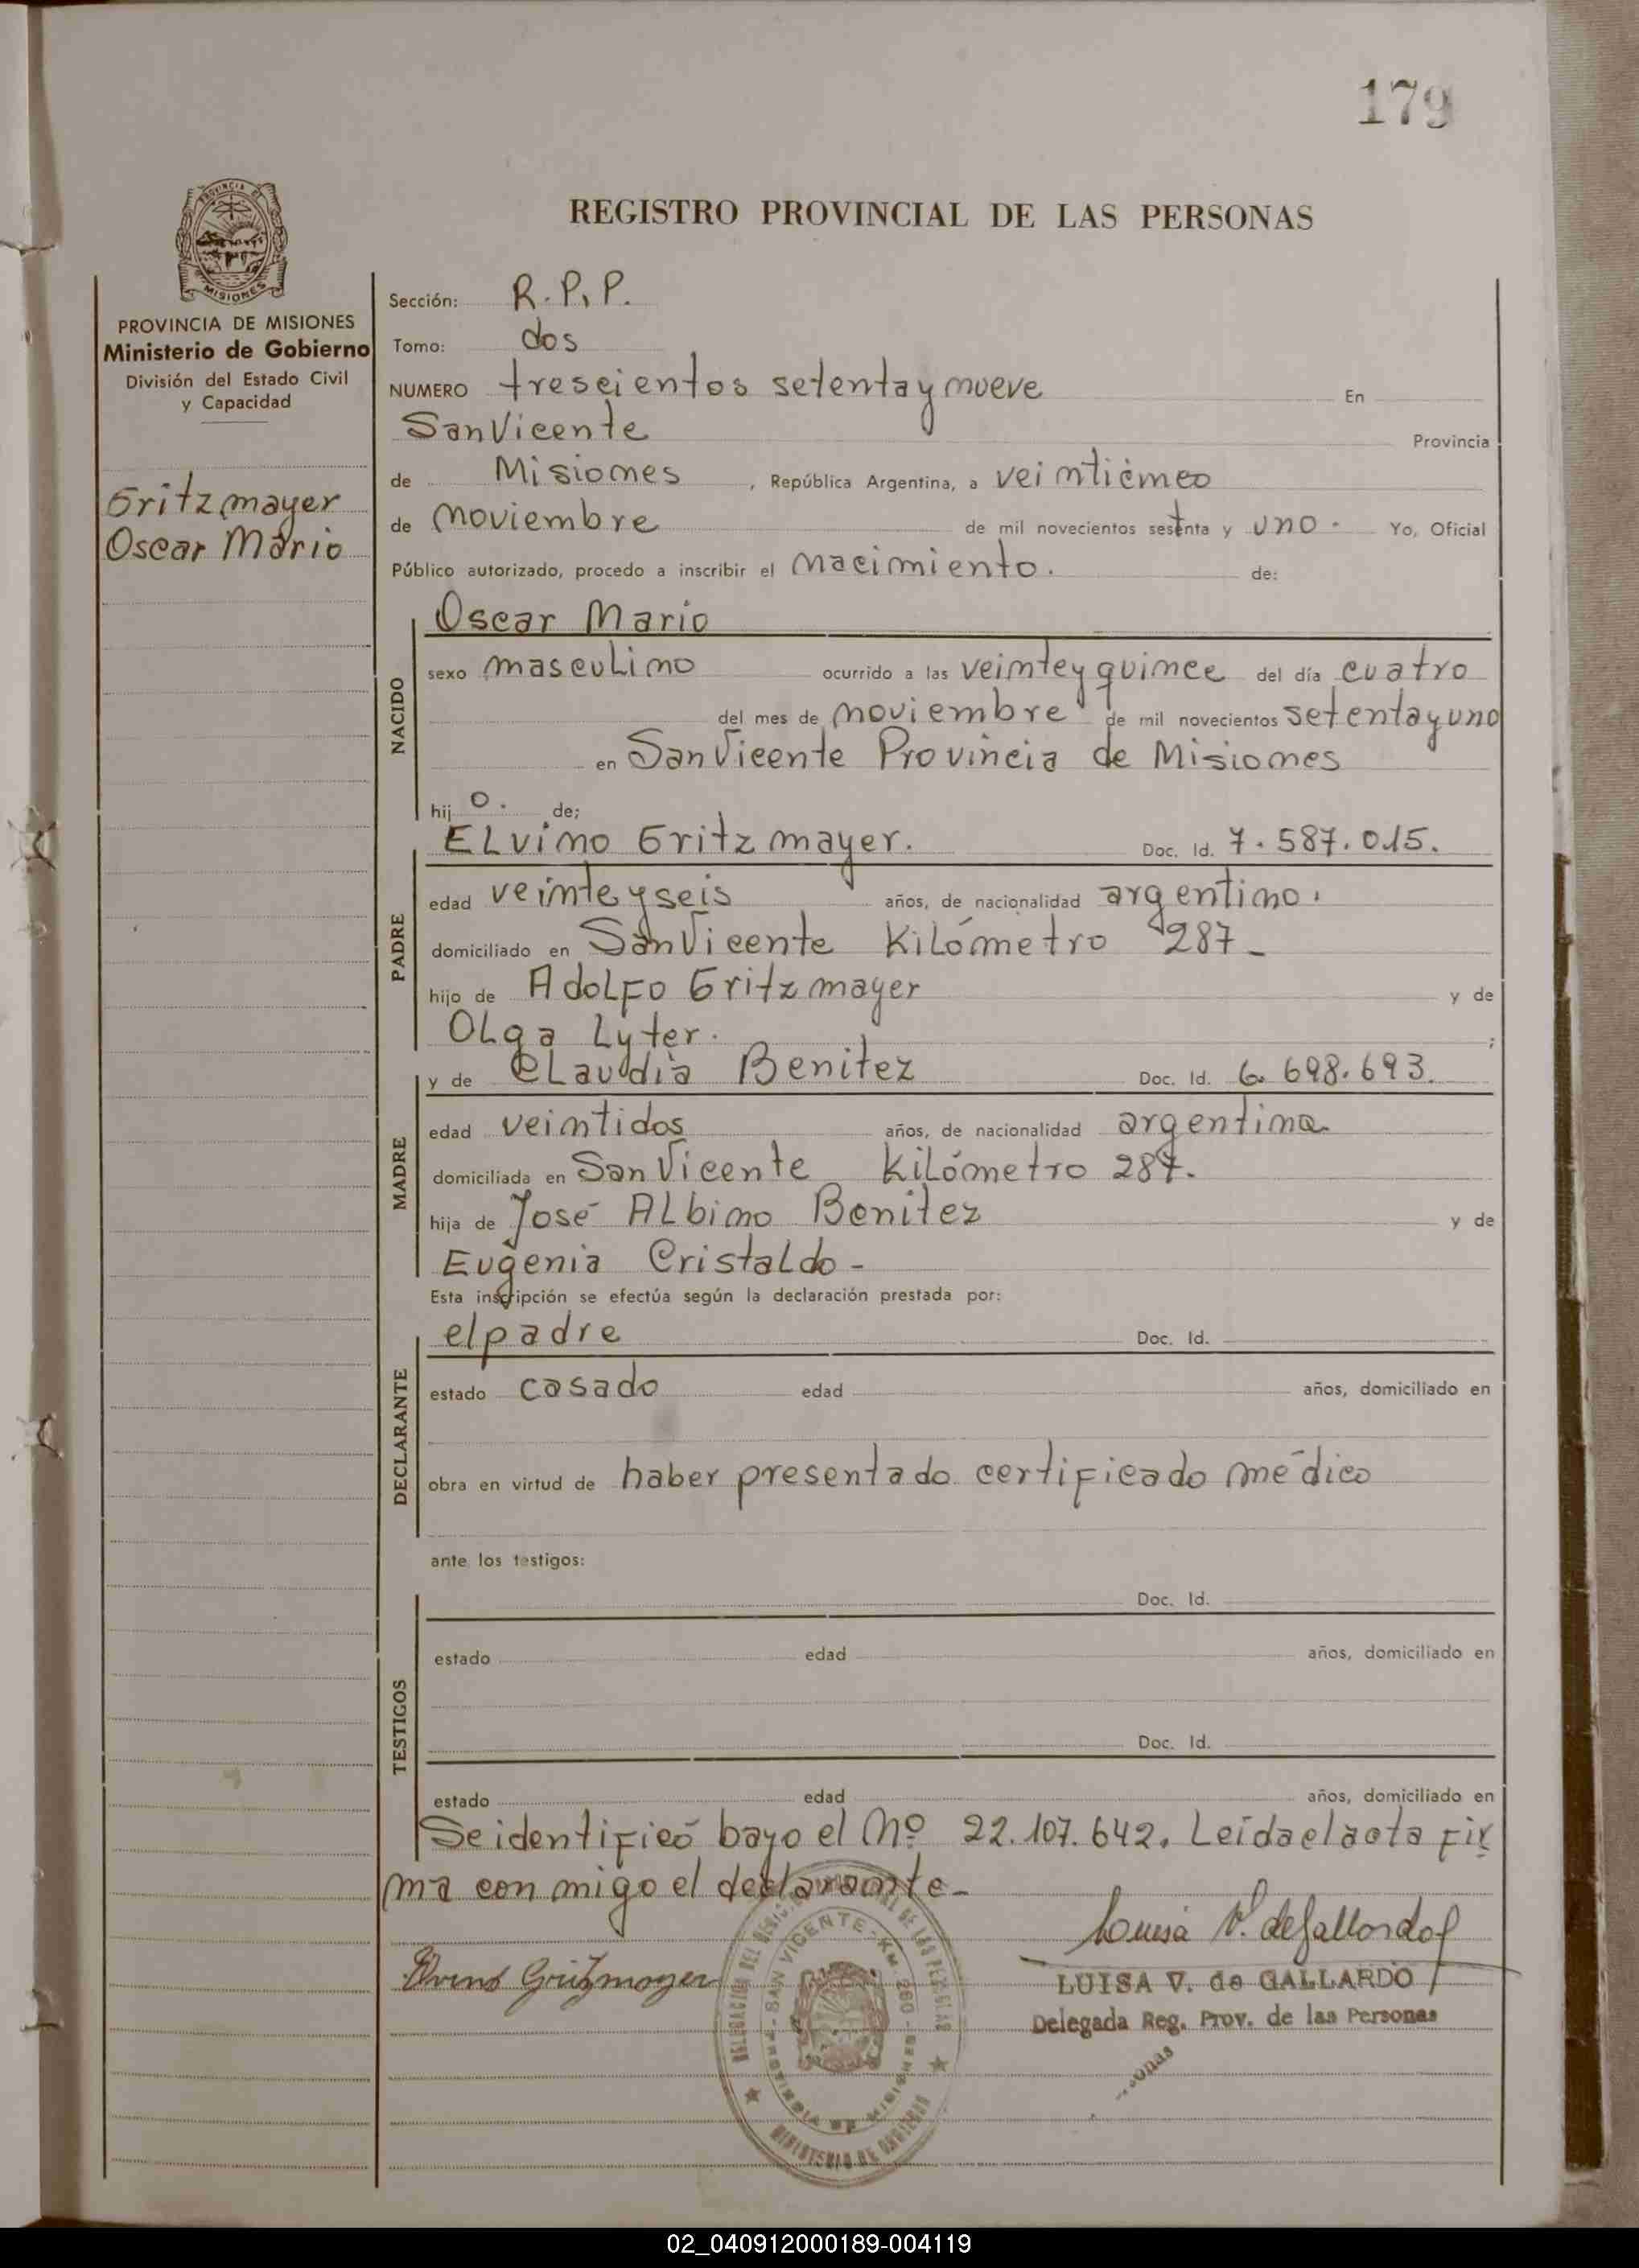 179
REGISTRO PROVINCIAL DE LAS PERSONAS
PROVINCIA DE
MISIONES
PROVINCIA DE MISIONES
Ministerio de Gobierno
División del Estado Civil
y Capacidad
Gritzmayer
Oscar Mario
Sección: R.P.P.
Tomo: dos
NUMERO trescientos setenta y nueve En
San Vicente Provincia
de Misiones, República Argentina, a veinticinco
de noviembre de mil novecientos sestenta y uno. Yo, Oficial
Público autorizado, procedo a inscribir el nacimiento. de:
NACIDO
Oscar Mario
sexo masculino ocurrido a las veinte y quince del día cuatro
del mes de noviembre de mil novecientos setenta y uno
en San Vicente Provincia de Misiones
hijo. de;
PADRE
Elvino Gritzmayer. Doc. Id. 7.587.015.
edad veinte y seis años, de nacionalidad argentino.
domiciliado en San Vicente Kilómetro 287-
hijo de Adolfo Gritzmayer y de
Olga Lyter. ;
MADRE
y de Claudia Benitez Doc. Id. 6.698.693.
edad veintidos años, de nacionalidad argentina
domiciliada en San Vicente Kilómetro 287.
hija de José Albino Benitez y de
Eugenia Cristaldo-
Esta inscripción se efectúa según la declaración prestada por:
DECLARANTE
el padre Doc. Id.
estado casado edad años, domiciliado en
obra en virtud de haber presentado certificado médico
ante los testigos:
TESTIGOS
Doc. Id.
estado edad años, domiciliado en
Doc. Id.
estado edad años, domiciliado en
Se identificó bayo el Nº 22.107.642. Leída el acta fir
ma con migo el declarante-
Gritzmayer
Luisa V. de Gallardo
LUISA V. de GALLARDO
Delegada Reg. Prov. de las Personas
sonas
DELEGACION DEL REGISTRO PROVINCIAL DE LAS PERSONAS
SAN VICENTE - Km. 260 -
PROVINCIA DE MISIONES
MINISTERIO DE GOBIERNO
02_040912000189-004119